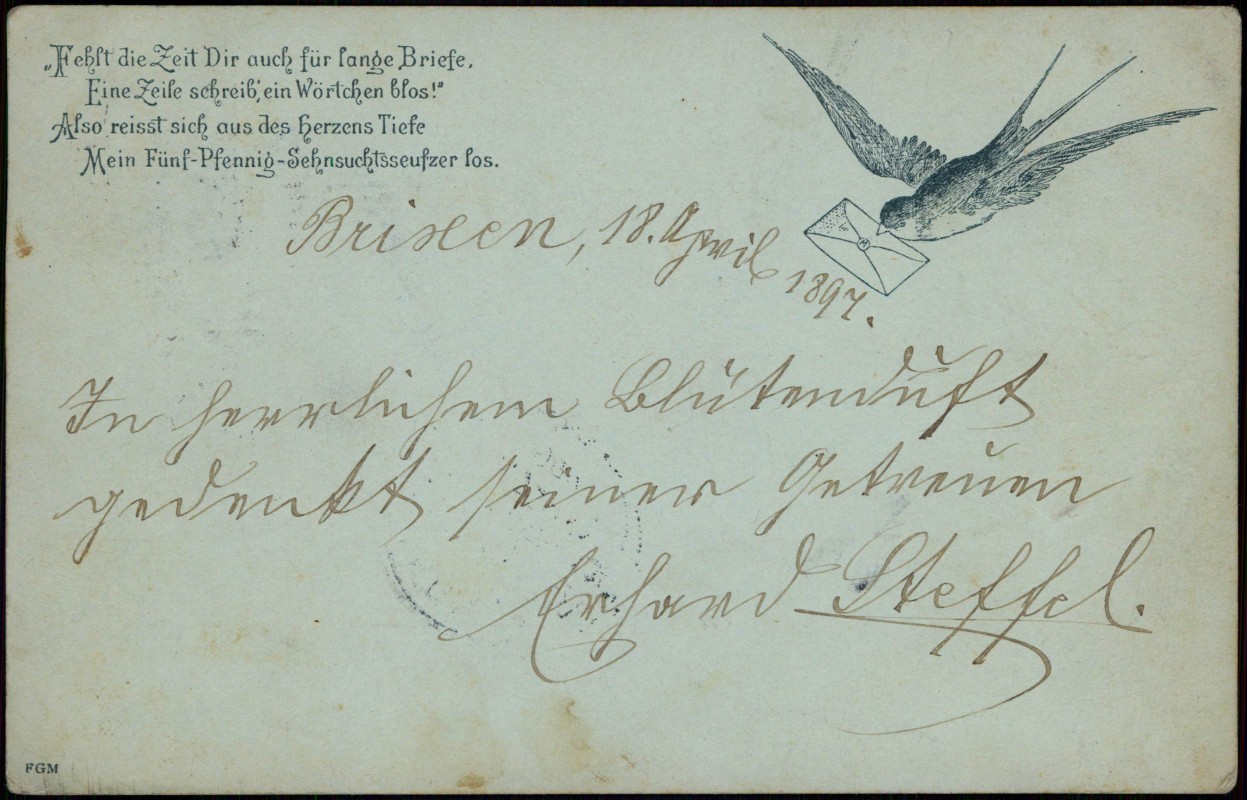 „Fehlt die Zeit Dir auch für lange Briefe,
Eine Zeile schreib', ein Wörtchen blos!"
Also reisst sich aus des Herzens Tiefe
Mein Fünf-Pfennig-Sehnsuchtsseufzer los.
Brixen, 18. April
1897.
In herrlichem Blütenduft
gedenkt seiner Getreuen
Erhard Steffel.
FGM